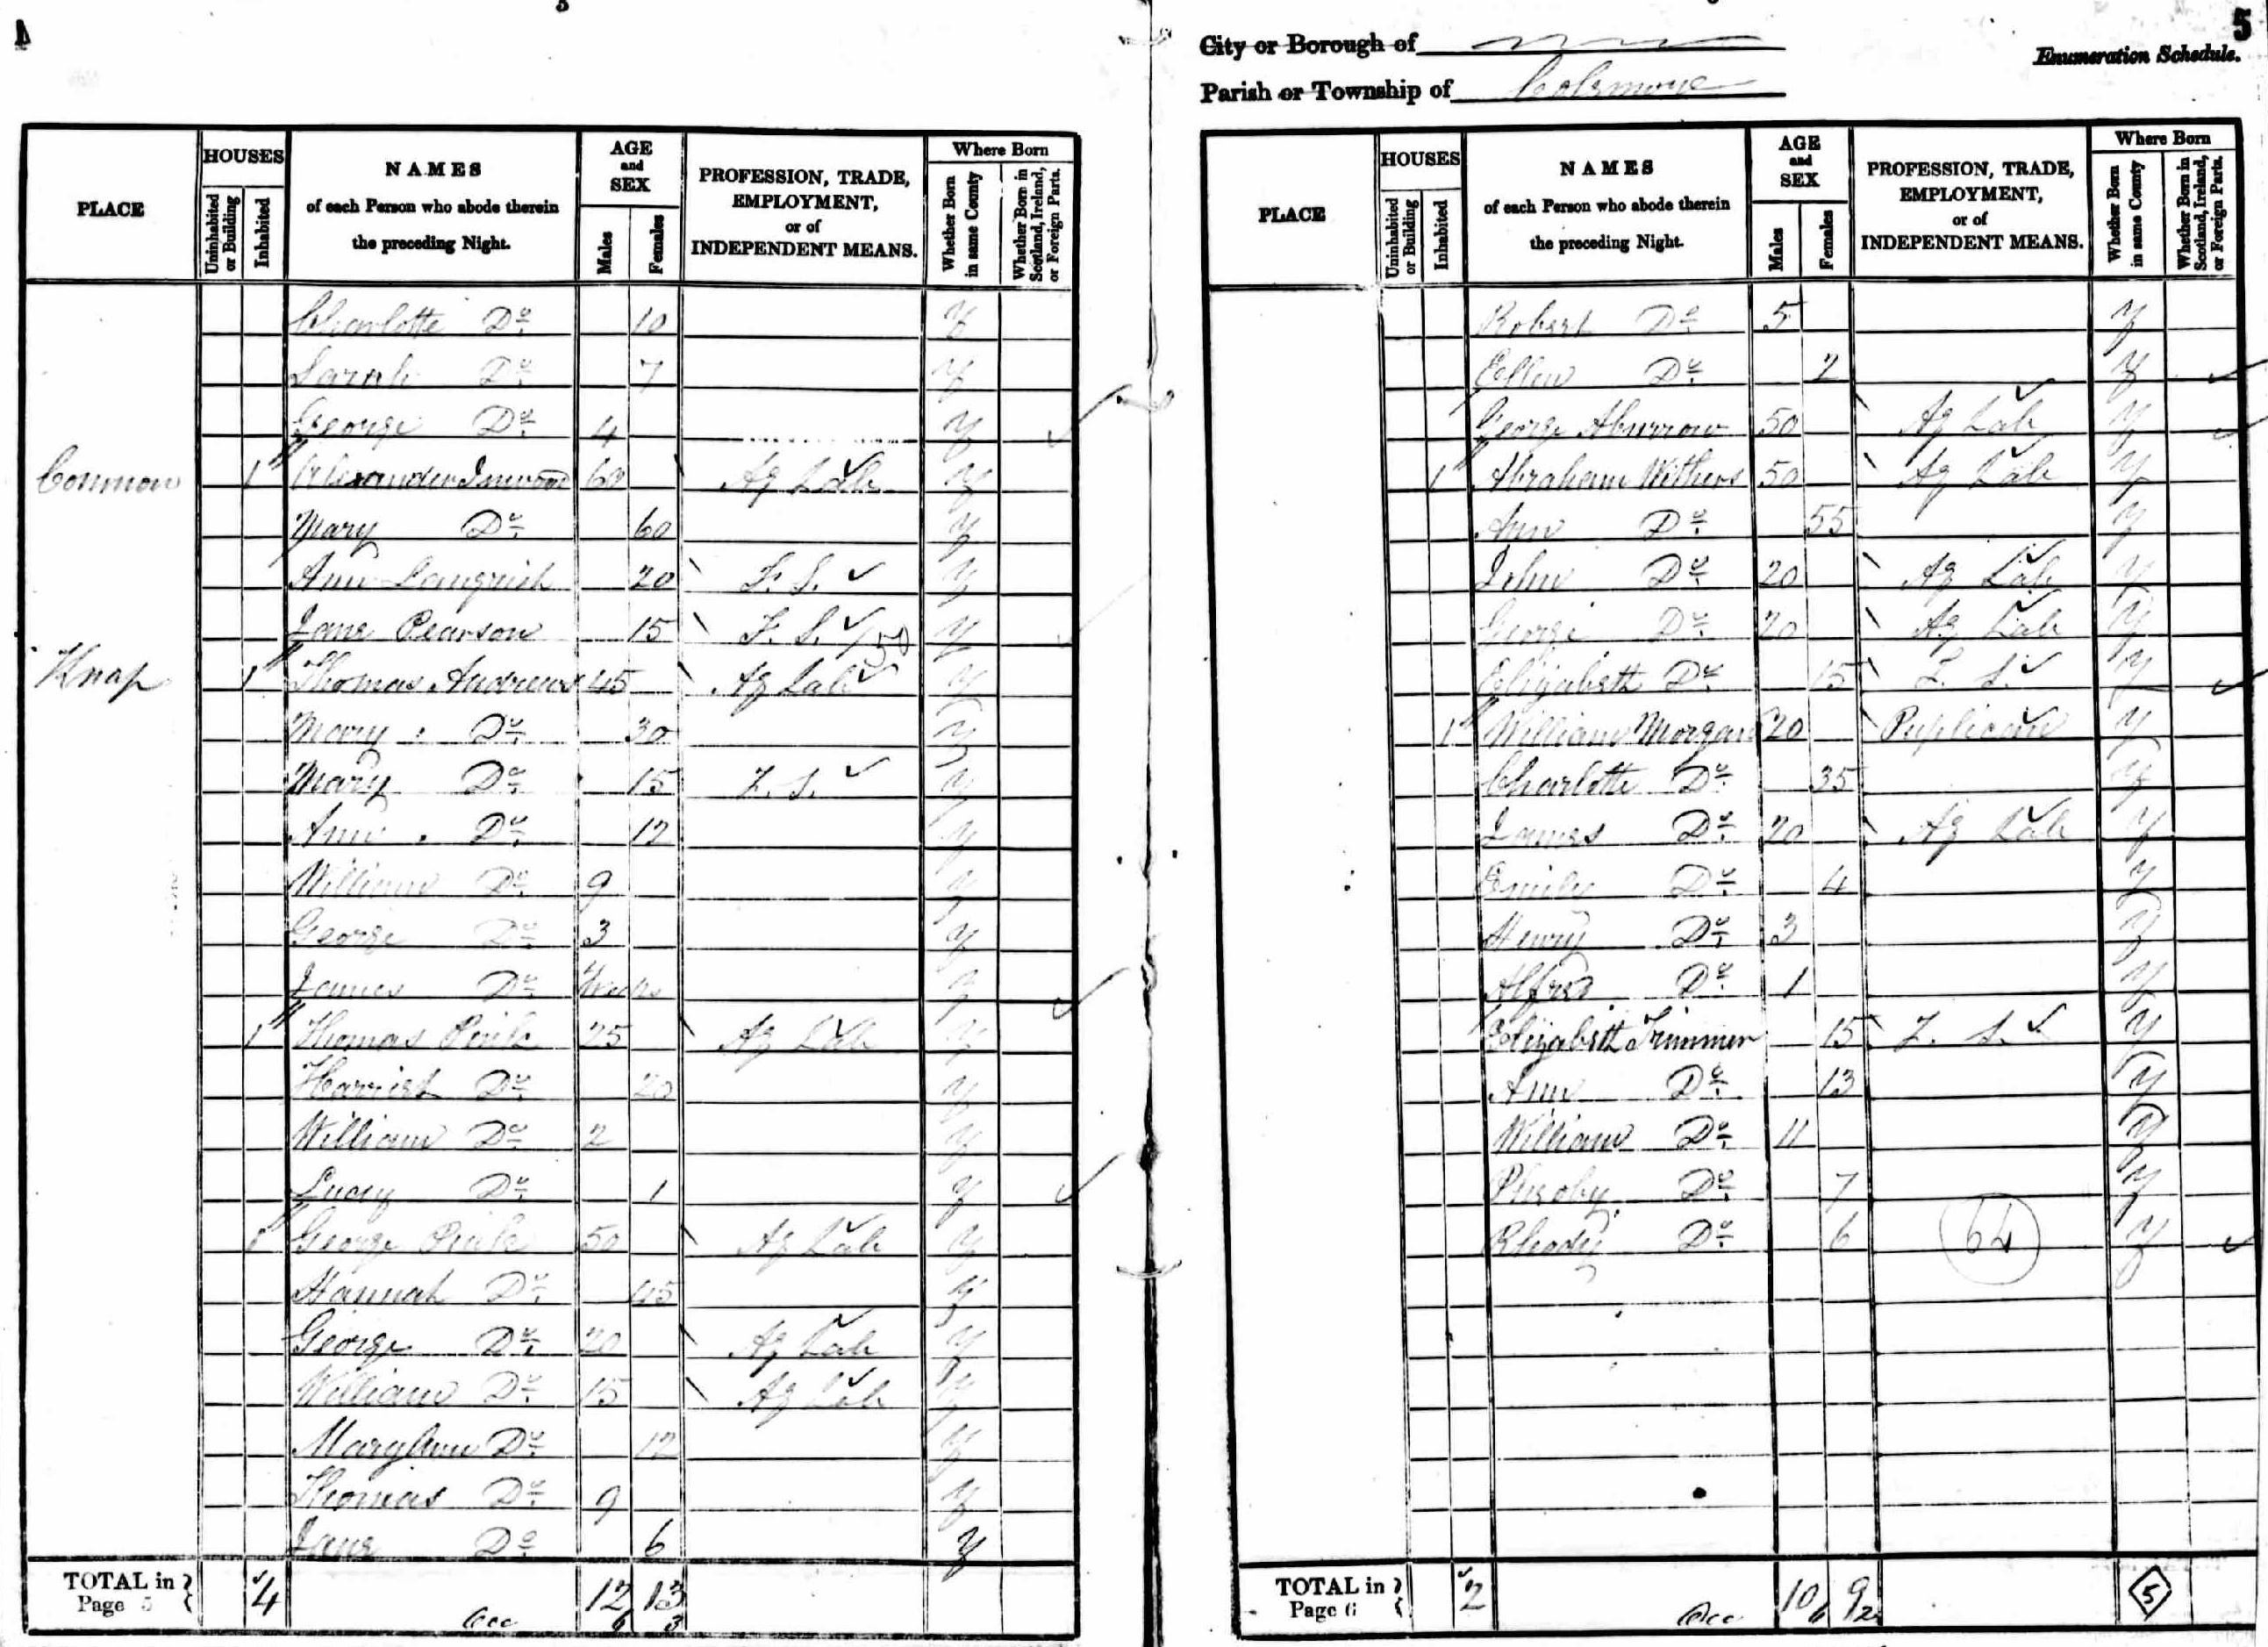 5
City or Borough of
Enumeration Schedule.
Parish or Township of Colemore
PLACE
HOUSES
Uninhabited or Building
Inhabited
NAMES
of each Person who abode therein
the preceding Night.
AGE
and
SEX
Males
Females
PROFESSION, TRADE,
EMPLOYMENT,
or of
INDEPENDENT MEANS.
Where Born
Whether Born in same County
Whether Born in Scotland, Ireland, or Foreign Parts.
Charlotte Do. 10 Y
Sarah Do. 7 Y
George Do. 4 Y
Common 1 Alexander Inwood 60 Ag Lab Y
Mary Do. 60 Y
Ann Langrish 20 F. S. Y
Jane Pearson 15 F. S. Y
Knap 1 Thomas Andrews 45 Ag Lab Y
Mary Do. 30 Y
Mary Do. 15 F. S. Y
Ann Do. 12 Y
William Do. 9 Y
George Do. 3 Y
James Do. Weeks Y
1 Thomas 25 Ag Lab Y
Harriet Do. 20 Y
William Do. 2 Y
Lucy Do. 1 Y
1 George 50 Ag Lab Y
Hannah Do. 45 Y
George Do. 20 Ag Lab Y
William Do. 15 Ag Lab Y
Mary Ann Do. 12 Y
Thomas Do. 9 Y
Jane Do. 6 Y
TOTAL in Page 5 4 12 13
Occ 6 3
PLACE
HOUSES
Uninhabited or Building
Inhabited
NAMES
of each Person who abode therein
the preceding Night.
AGE
and
SEX
Males
Females
PROFESSION, TRADE,
EMPLOYMENT,
or of
INDEPENDENT MEANS.
Where Born
Whether Born in same County
Whether Born in Scotland, Ireland, or Foreign Parts.
Robert Do. 5 Y
Ellen Do. 2 Y
George Aburrow 50 Ag Lab Y
1 Abraham Withers 50 Ag Lab Y
Ann Do. 55 Y
John Do. 20 Ag Lab Y
George Do. 20 Ag Lab Y
Elizabeth Do. 15 F. S. Y
1 William Morgan 20 Puplican Y
Charlotte Do. 35 Y
James Do. 20 Ag Lab Y
Emily Do. 4 Y
Henry Do. 3 Y
Alfred Do. 1 Y
Elizabeth Trimmer 15 F. S. Y
Ann Do. 13 Y
William Do. 11 Y
Pheoby Do. 7 Y
Rhody Do. 6 64 Y
TOTAL in Page 6 2 10 9 5
Occ 6 2